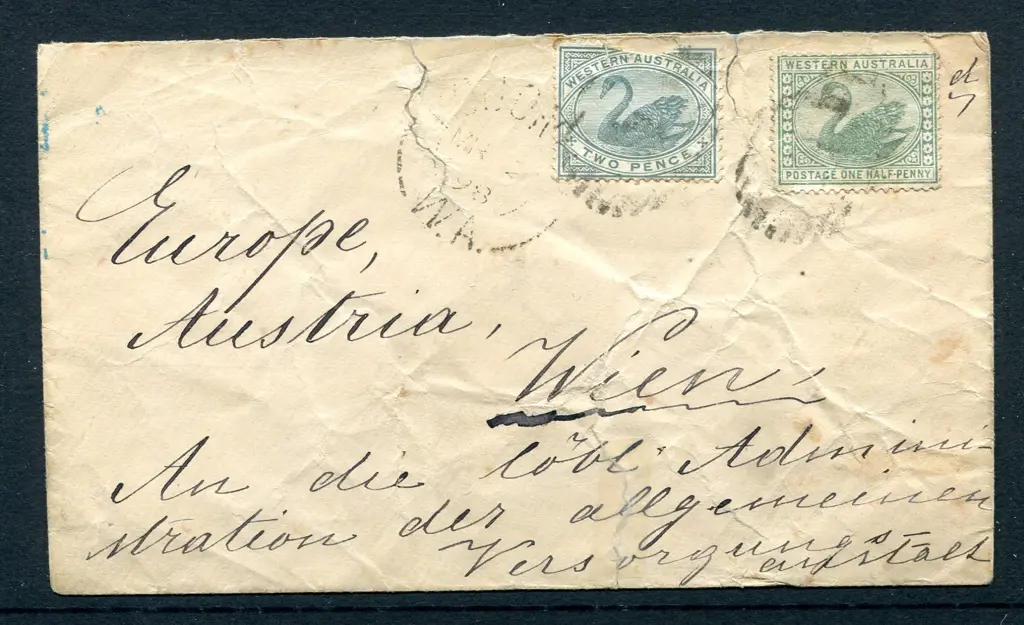 WESTERN AUSTRALIA
TWO PENCE
WESTERN AUSTRALIA
POSTAGE ONE HALF-PENNY
98
W.A.
Europe,
Austria,
Wien,
An die löbl Admini-
stration der allgemeinen
Versorgungs
anstalt